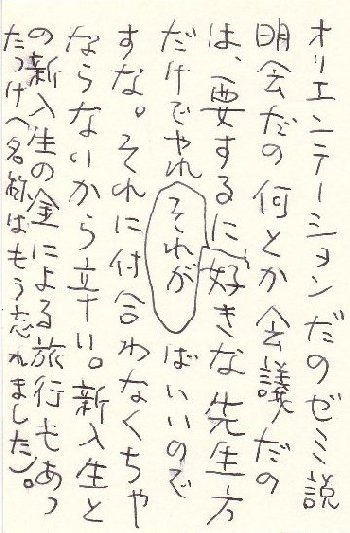 オリエンテーションだのゼミ説
明会だの何とか会議だの
は、要するに好きな先生方
だけでやれそれがばいいので
すな。それに付合わなくちゃ
ならないから辛い。新入生と
の新入生の金による旅行もあっ
たっけ(名称はもう忘れました)。